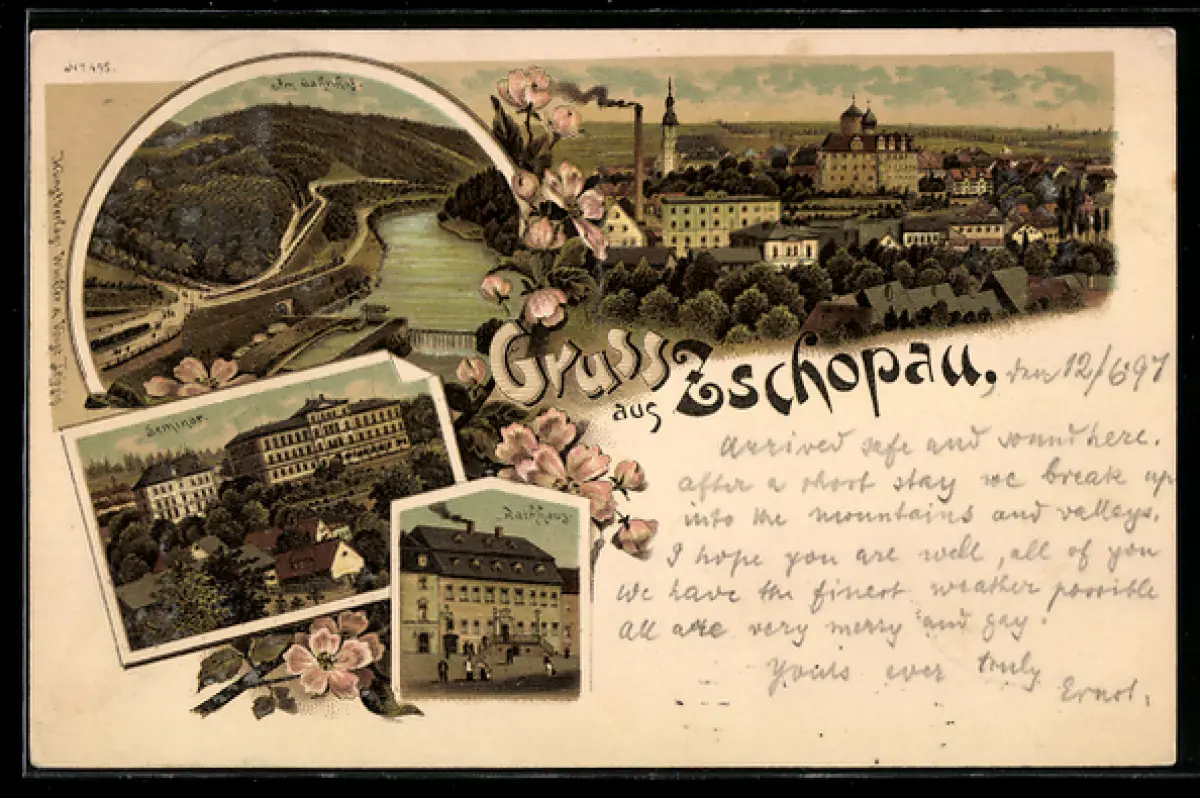 No 495.
Am Bahnhof.
Kunstverlag
Seminar.
Rathhaus.
Gruss
aus Zschopau, den 12/6 97
Arrived safe and sound here.
after a short stay we break up
into the mountains and valleys.
I hope you are well, all of you
We have the finest weather possible
all are very merry and gay.
Yours ever truly
Ernst.